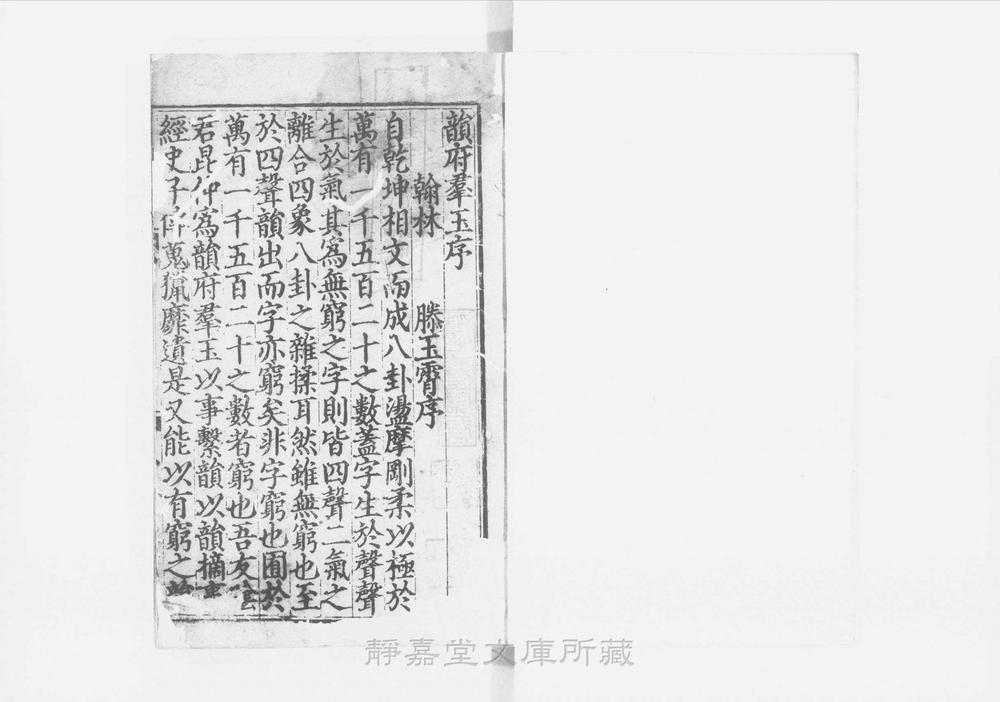 韻府羣玉序
翰林 滕玉霄序
自乾坤相文而成八卦盪摩剛柔以極於
萬有一千五百二十之數蓋字生於聲聲
生於氣其爲無窮之字則皆四聲二氣之
離合四象八卦之雜揉耳然雖無窮也至
於四聲韻出而字亦窮矣非字窮也囿於
萬有一千五百二十之數者窮也吾友陰
君昆仲爲韻府羣玉以事繫韻以韻摘事
經史子傳蒐獵靡遺是又能以有窮之
靜嘉堂文庫所藏